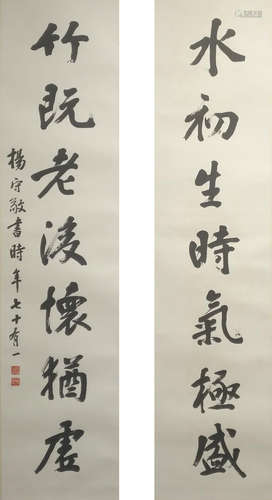 水初生時氣極盛
竹既老淩懷猶虛
楊守敬書時年七十有一